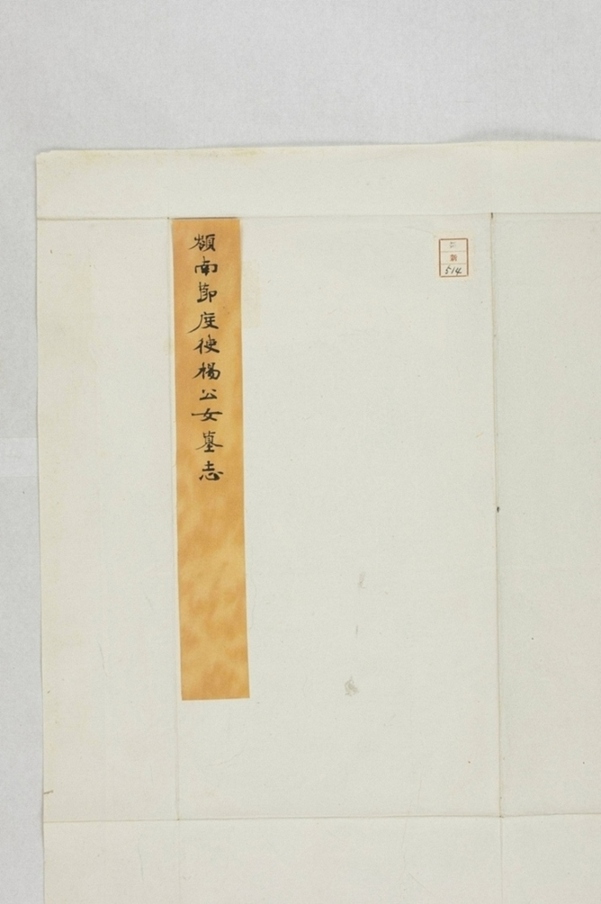 嶺南節度使楊公女墓志
514